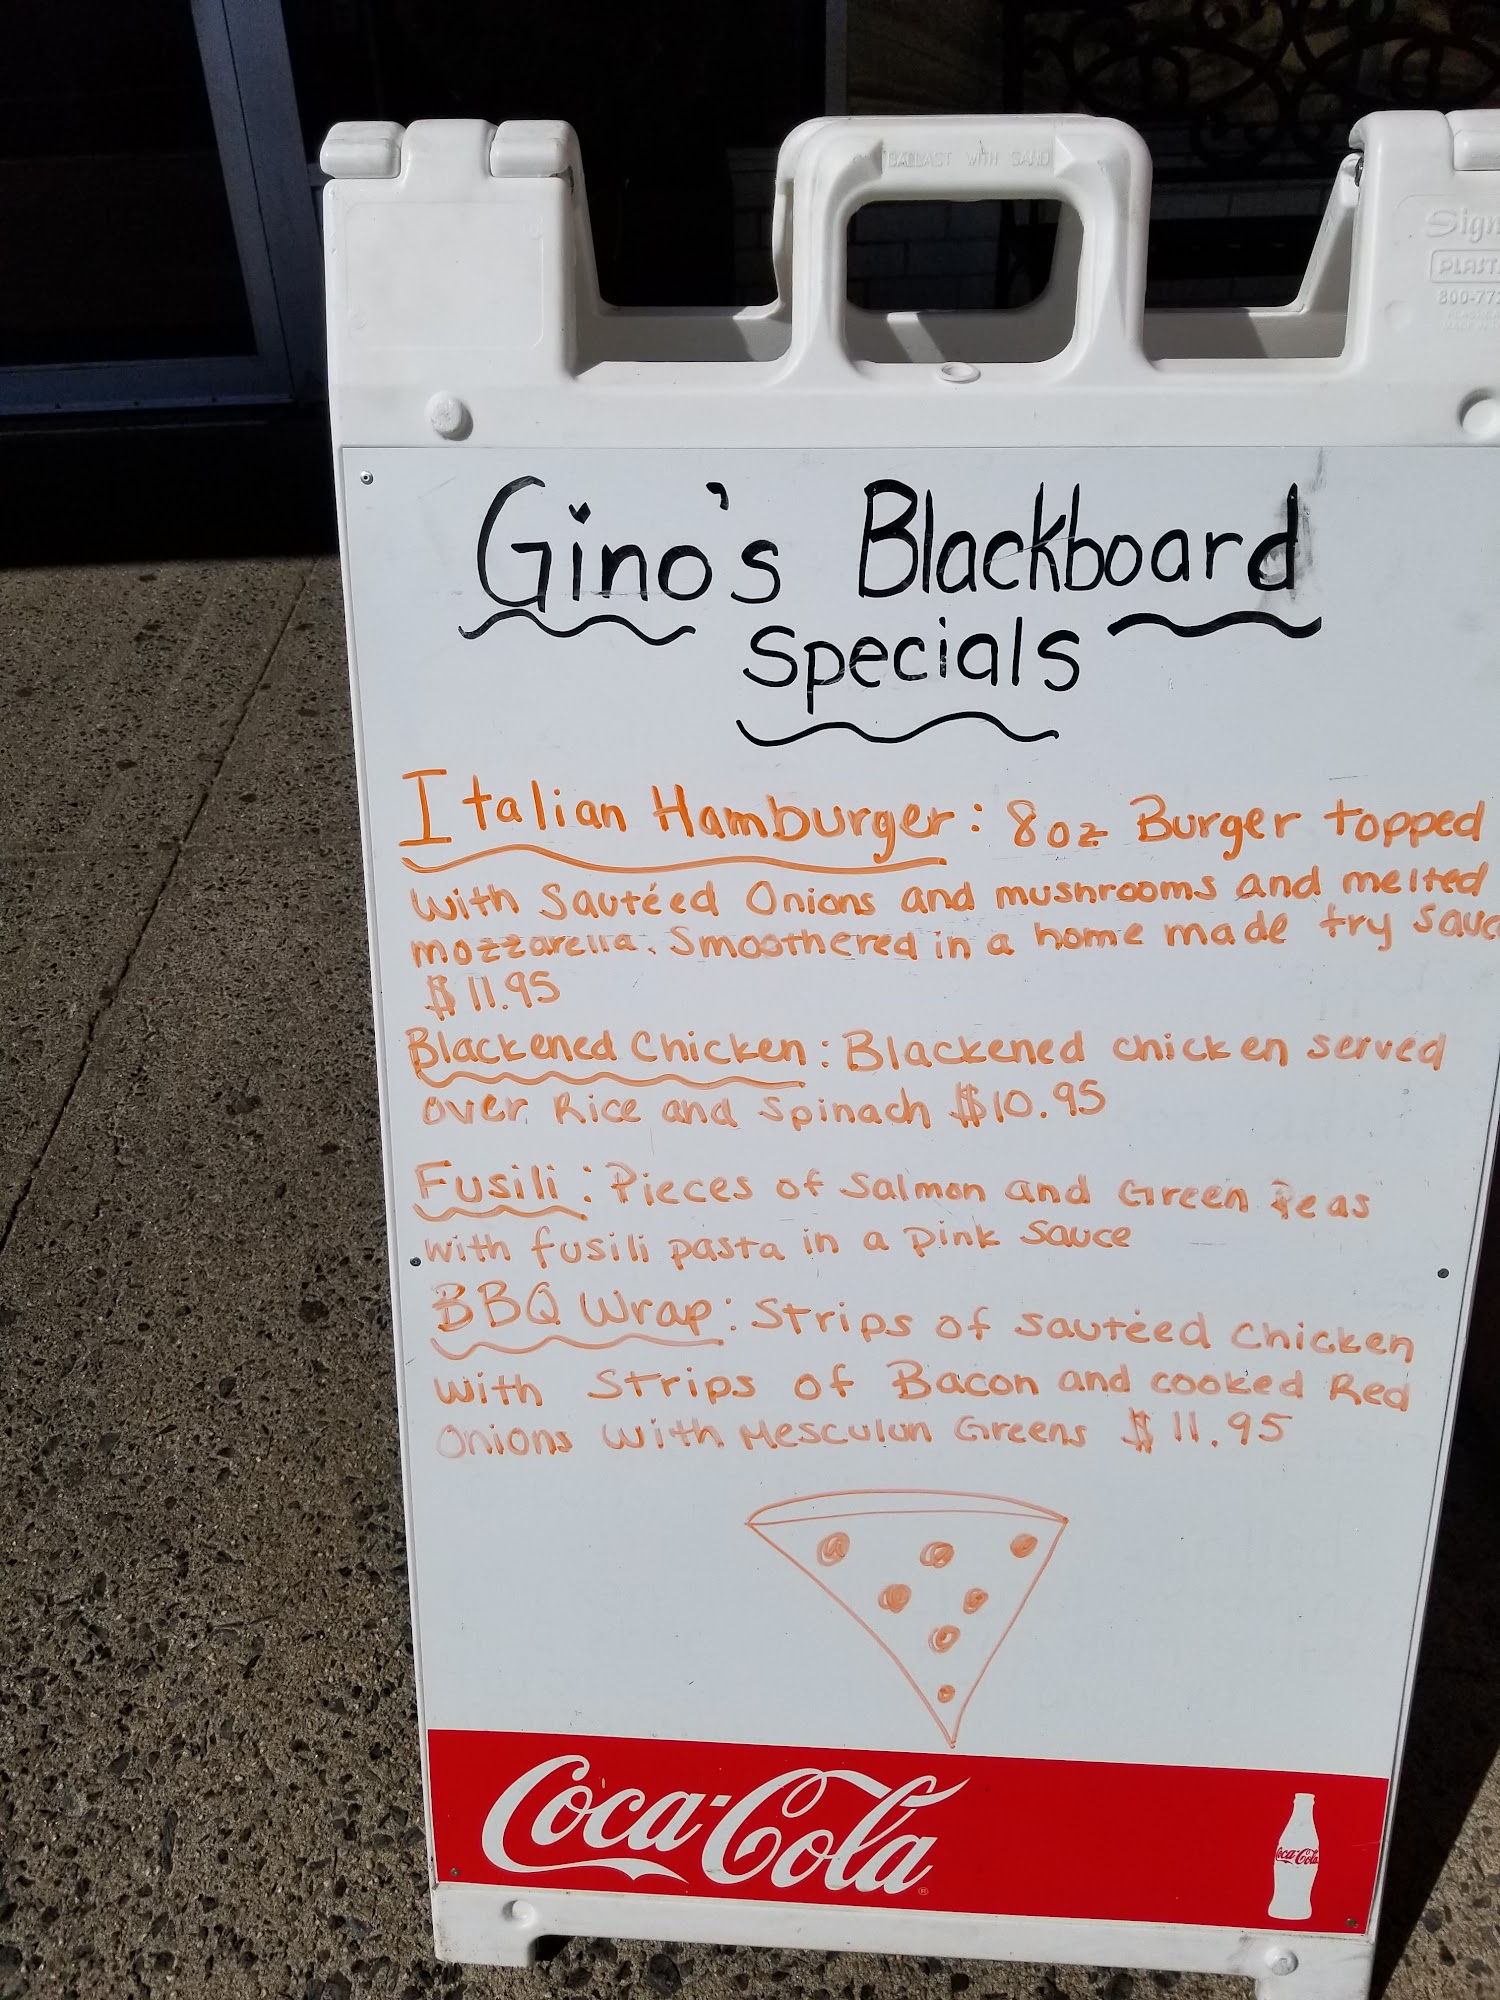 BALLAST WITH SAND
Sign
PLAST
800-77
Gino's Blackboard
Specials
Italian Hamburger: 8oz Burger topped
with Sautéed Onions and mushrooms and melted
mozzarella. Smoothered in a home made fry sauc
$11.95
Blackened Chicken: Blackened chicken served
over Rice and Spinach $10.95
Fusili: Pieces of Salmon and Green Peas
with fusili pasta in a pink sauce
BBQ Wrap: Strips of sautéed chicken
with Strips of Bacon and cooked Red
Onions with Mesculun Greens $11.95
Coca-Cola®
Coca-Cola